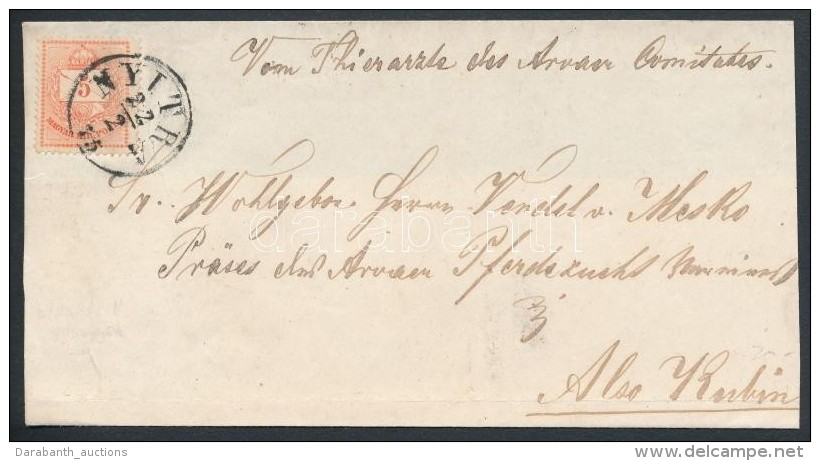 Vom Thierarzte des Arvaer Comitates.
5
MAGYAR
NYITRA
22/2
Sr. Wohlgebor. Herrn Vendel v. Mesko
darabanth
Präses des Arvaer Pferdezucht
Also Kubin
Darabanth_auctions
delcampe.net